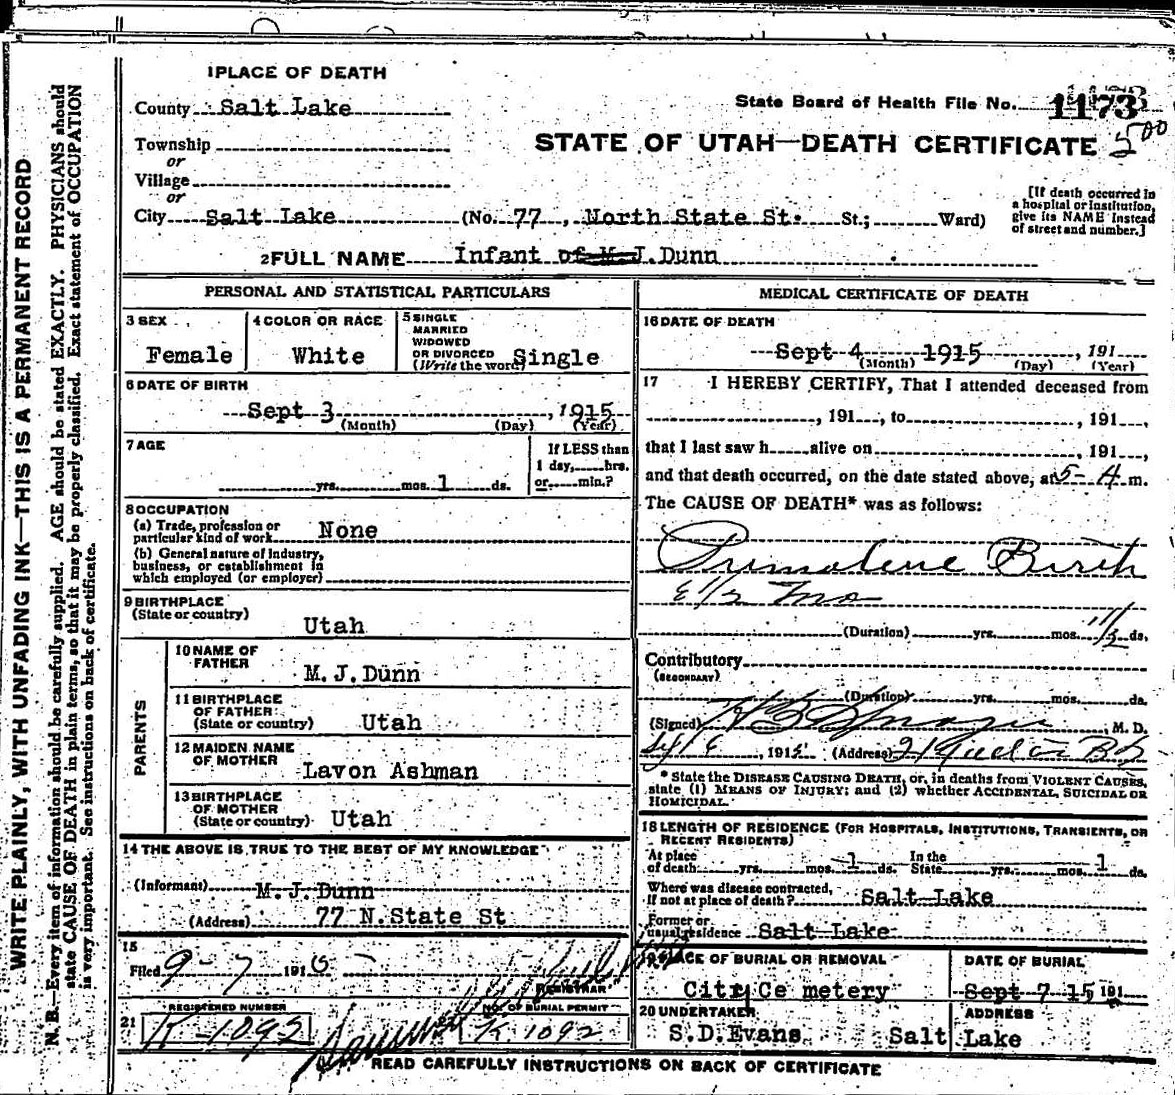 1 PLACE OF DEATH
County Salt Lake
State Board of Health File No. 1173
Township
or
Village
or
STATE OF UTAH—DEATH CERTIFICATE 500
City Salt Lake (No. 77, North State St. St.; Ward)
[If death occurred in a hospital or institution, give its NAME instead of street and number.]
2 FULL NAME Infant of M. J. Dunn
PERSONAL AND STATISTICAL PARTICULARS
3 SEX
Female
4 COLOR OR RACE
White
5 SINGLE
MARRIED
WIDOWED
OR DIVORCED
(Write the word) Single
6 DATE OF BIRTH
Sept 3, 1915
(Month) (Day) (Year)
7 AGE
yrs. mos. 1 ds.
If LESS than
1 day, hrs.
or min.?
8 OCCUPATION
(a) Trade, profession or
particular kind of work None
(b) General nature of industry,
business, or establishment in
which employed (or employer)
9 BIRTHPLACE
(State or country)
Utah
PARENTS
10 NAME OF
FATHER
M. J. Dunn
11 BIRTHPLACE
OF FATHER
(State or country) Utah
12 MAIDEN NAME
OF MOTHER
Lavon Ashman
13 BIRTHPLACE
OF MOTHER
(State or country) Utah
14 THE ABOVE IS TRUE TO THE BEST OF MY KNOWLEDGE
(Informant) M. J. Dunn
(Address) 77 N. State St
15
Filed 9-7 1915
REGISTRAR
REGISTERED NUMBER
NO. OF BURIAL PERMIT
21 K-1092 K 1092
MEDICAL CERTIFICATE OF DEATH
16 DATE OF DEATH
Sept 4 1915, 191
(Month) (Day) (Year)
17 I HEREBY CERTIFY, That I attended deceased from
, 191 , to , 191 ,
that I last saw h alive on , 191 ,
and that death occurred, on the date stated above, at 5-A m.
The CAUSE OF DEATH* was as follows:
Birth
(Duration) yrs. mos. ds.
Contributory
(SECONDARY)
(Duration) yrs. mos. ds.
(Signed) , M. D.
, 1915 (Address)
* State the DISEASE CAUSING DEATH, or, in deaths from VIOLENT CAUSES,
state (1) MEANS OF INJURY; and (2) whether ACCIDENTAL, SUICIDAL OR
HOMICIDAL.
18 LENGTH OF RESIDENCE (FOR HOSPITALS, INSTITUTIONS, TRANSIENTS, OR
RECENT RESIDENTS)
At place
of death yrs. mos. 1 ds.
In the
State yrs. mos. 1 ds.
Where was disease contracted,
if not at place of death? Salt Lake
Former or
usual residence Salt Lake
19 PLACE OF BURIAL OR REMOVAL
City Ce metery
DATE OF BURIAL
Sept 7 15, 191
20 UNDERTAKER
S.D.Evans
ADDRESS
Salt Lake
READ CAREFULLY INSTRUCTIONS ON BACK OF CERTIFICATE
WRITE PLAINLY, WITH UNFADING INK—THIS IS A PERMANENT RECORD
N. B.—Every item of information should be carefully supplied. AGE should be stated EXACTLY. PHYSICIANS should
state CAUSE OF DEATH in plain terms, so that it may be properly classified. Exact statement of OCCUPATION
is very important. See instructions on back of certificate.